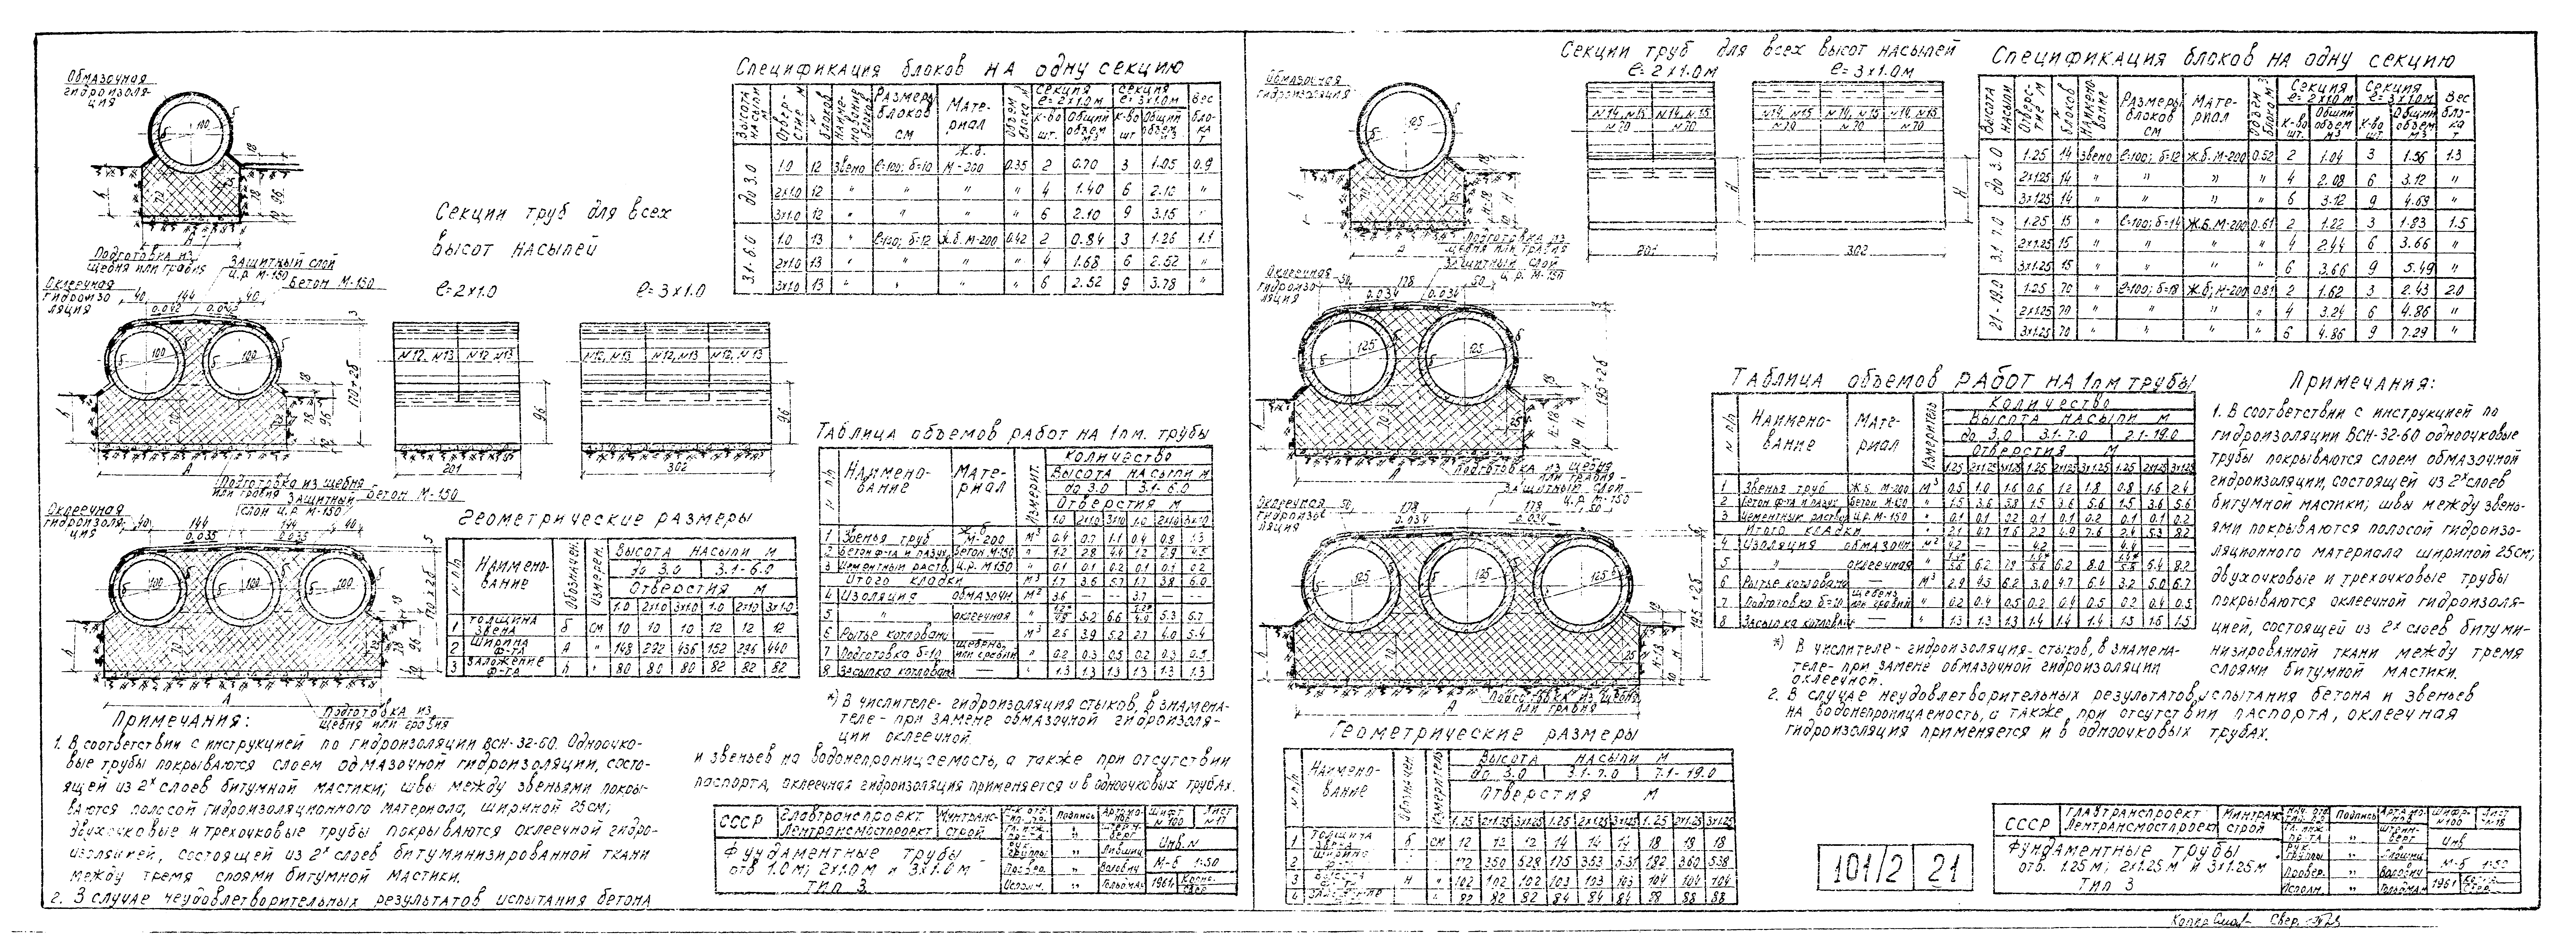 Обмазочная
гидроизоля-
ция
Подготовка из
щебня или гравия
Защитный слой
ц.р. М-150
Бетон М-150
Оклеечная
гидроизо-
ляция
Секции труб для всех
высот насыпей
ℓ=2х1.0
ℓ=3х1.0
N12, N13 N12 N13
N12, N13 N12, N13 N12, N13
201
302
96
Подготовка из щебня
или гравия
Защитный
слой ц.р. М-150
Бетон М-150
Оклеечная
гидроизоля-
ция
Подготовка из
щебня или гравия
Спецификация блоков на одну секцию
Высота насыпи м | Отвер-стие м | N блоков | Наиме-нование блока | Размеры блоков см | Мате-риал | Объем блока м³ | Секция ℓ=2х1.0м К-во шт. | Общий объем м3 | Секция ℓ=3х1.0м К-во шт | Общий объем м3 | Вес бло-ка т
до 3.0 | 1.0 | 12 | Звено | ℓ=100; δ=10 | Ж.б. М-200 | 0.35 | 2 | 0.70 | 3 | 1.05 | 0.9
2х1.0 | 12 | " | " | " | " | 4 | 1.40 | 6 | 2.10 | "
3х1.0 | 12 | " | " | " | " | 6 | 2.10 | 9 | 3.15 | "
3.1-6.0 | 1.0 | 13 | " | ℓ=100; δ=12 | Ж.б. М-200 | 0.42 | 2 | 0.84 | 3 | 1.26 | 1.1
2х1.0 | 13 | " | " | " | " | 4 | 1.68 | 6 | 2.52 | "
3х1.0 | 13 | " | " | " | " | 6 | 2.52 | 9 | 3.78 | "
Геометрические размеры
N п/п | Наимено-вание | Обозначен. | Измерен. | Высота насыпи м
до 3.0 | 3.1-6.0
Отверстия м
1.0 | 2х1.0 | 3х1.0 | 1.0 | 2х1.0 | 3х1.0
1 | Толщина звена | δ | см | 10 | 10 | 10 | 12 | 12 | 12
2 | Ширина ф-та | А | " | 148 | 292 | 436 | 152 | 296 | 440
3 | Заложение ф-та | h | " | 80 | 80 | 80 | 82 | 82 | 82
Таблица объемов работ на 1 п.м. трубы
N п/п | Наимено-вание | Мате-риал | Измерит. | Количество
Высота насыпи м
до 3.0 | 3.1-6.0
Отверстия м
1.0 | 2х1.0 | 3х1.0 | 1.0 | 2х1.0 | 3х1.0
1 | Звенья труб | Ж.б. М-200 | м³ | 0.4 | 0.7 | 1.1 | 0.4 | 0.8 | 1.3
2 | Бетон ф-та и пазух | Бетон М-150 | " | 1.2 | 2.8 | 4.4 | 1.2 | 2.9 | 4.5
3 | Цементный раств. | ц.р. М150 | " | 0.1 | 0.1 | 0.2 | 0.1 | 0.1 | 0.2
Итого кладки | м³ | 1.7 | 3.6 | 5.7 | 1.7 | 3.8 | 6.0
4 | Изоляция | обмазочн | м² | 3.6 | — | — | 3.7 | — | —
5 | " | оклеечная | " | 5.2 | 6.6 | 5.3 | 6.7
6 | Рытье котлована | — | м³ | 2.6 | 3.9 | 5.2 | 2.7 | 4.0 | 5.4
7 | Подготовка δ=10 | щебено или гравий | " | 0.2 | 0.3 | 0.5 | 0.2 | 0.3 | 0.5
8 | Засыпка котлован | — | " | 1.3 | 1.3 | 1.3 | 1.3 | 1.3 | 1.3
*) В числителе- гидроизоляция стыков, в знамена-
теле - при замене обмазочной гидроизоля-
ции оклеечной.
Примечания:
1. В соответствии с инструкцией по гидроизоляции ВСН-32-60. Одноочко-
вые трубы покрываются слоем обмазочной гидроизоляции, состо-
ящей из 2х слоев битумной мастики; швы между звеньями покры-
ваются полосой гидроизоляционного материала, шириной 25см;
двухочковые и трехочковые трубы покрываются оклеечной гидро-
изоляцией, состоящей из 2х слоев битуминизированной ткани
между тремя слоями битумной мастики.
2. В случае неудовлетворительных результатов испытания бетона
и звеньев на водонепроницаемость, а также при отсутствии
паспорта, оклеечная гидроизоляция применяется и в одноочковых трубах.
СССР | Главтранспроект Лентрансмостпроект | Минтранс-строй | Подпись | Шифр N 100 | Лист N 17
Фундаментные трубы
отв 1.0м; 2х1.0м и 3х1.0м
Тип 3
Инв. N
М-б 1:50
1961г.
Обмазочная
гидроизоляция
Подготовка из
щебня или гравия
Защитный слой
ц.р. М-150
Оклеечная
гидроизо-
ляция
Подготовка из щебня
или гравия
Защитный слой
ц.р. М-150
Оклеечная
гидроизо-
ляция
Подготовка из щебня
или гравия
Секции труб для всех высот насыпей
ℓ=2х1.0м
ℓ=3х1.0м
N14, N15 N14, N15
N70 N70
N14, N15 N14, N15 N14, N15
N70 N70 N70
201
302
Н
Н
Спецификация блоков на одну секцию
Высота насыпи | Отверс-тие м | N блоков | Наимено-вание | Размеры блоков см | Мате-риал | Объем блока м3 | Секция ℓ=2х1.0м К-во шт. | Общий объем м3 | Секция ℓ=3х1.0м К-во шт. | Общий объем м3 | Вес бло-ка т
до 3.0 | 1.25 | 14 | Звено | ℓ=100; δ=12 | Ж.б. М-200 | 0.52 | 2 | 1.04 | 3 | 1.56 | 1.3
2х1.25 | 14 | " | " | " | " | 4 | 2.08 | 6 | 3.12 | "
3х1.25 | 14 | " | " | " | " | 6 | 3.12 | 9 | 4.69 | "
3.1 7.0 | 1.25 | 15 | " | ℓ=100; δ=14 | Ж.б. М-200 | 0.61 | 2 | 1.22 | 3 | 1.83 | 1.5
2х1.25 | 15 | " | " | " | " | 4 | 2.44 | 6 | 3.66 | "
3х1.25 | 15 | " | " | " | " | 6 | 3.66 | 9 | 5.49 | "
7.1-19.0 | 1.25 | 70 | " | ℓ=100; δ=18 | Ж.б; М-200 | 0.81 | 2 | 1.62 | 3 | 2.43 | 2.0
2х1.25 | 70 | " | " | " | " | 4 | 3.24 | 6 | 4.86 | "
3х1.25 | 70 | " | " | " | " | 6 | 4.86 | 9 | 7.29 | "
Таблица объемов работ на 1пм трубы
N п/п | Наимено-вание | Мате-риал | Измеритель | Количество
Высота насыпи м
до 3.0 | 3.1-7.0 | 7.1-19.0
Отверстия м
1.25 | 2х1.25 | 3х1.25 | 1.25 | 2х1.25 | 3х1.25 | 1.25 | 2х1.25 | 3х1.25
1 | Звенья труб | Ж.б. М-200 | м³ | 0.5 | 1.0 | 1.6 | 0.6 | 1.2 | 1.8 | 0.8 | 1.6 | 2.4
2 | Бетон ф-та и пазух | Бетон М-150 | " | 1.5 | 3.6 | 5.8 | 1.5 | 3.6 | 5.6 | 1.5 | 3.6 | 5.6
3 | Цементный раствор | ц.р. М-150 | " | 0.1 | 0.1 | 0.2 | 0.1 | 0.1 | 0.2 | 0.1 | 0.1 | 0.2
Итого кладки
4 | Изоляция | обмазочн | м² | 4.2 | — | —
5 | " | оклеечная | " | 6.2 | 7.9 | 6.2 | 8.0 | 6.4 | 8.2
6 | Рытье котлована | — | м³ | 2.9 | 4.5 | 6.2 | 3.0 | 4.7 | 6.4 | 3.2 | 5.0 | 6.7
7 | Подготовка δ=10 | щебень или гравий | " | 0.2 | 0.4 | 0.5 | 0.2 | 0.4 | 0.5 | 0.2 | 0.4 | 0.5
8 | Засыпка котлована | — | " | 1.3 | 1.3 | 1.3 | 1.4 | 1.4 | 1.4 | 1.5 | 1.5 | 1.5
*) В числителе- гидроизоляция- стыков, в знамена-
теле- при замене обмазочной гидроизоляции
оклеечной.
Примечания:
1. В соответствии с инструкцией по
гидроизоляции ВСН-32-60 одноочковые
трубы покрываются слоем обмазочной
гидроизоляции, состоящей из 2х слоев
битумной мастики; швы между звень-
ями покрываются полосой гидроизо-
ляционного материала шириной 25см;
двухочковые и трехочковые трубы
покрываются оклеечной гидроизоля-
цией, состоящей из 2х слоев битуми-
низированной ткани между тремя
слоями битумной мастики.
2. В случае неудовлетворительных результатов испытания бетона и звеньев
на водонепроницаемость, а также, при отсутствии паспорта, оклеечная
гидроизоляция применяется и в одноочковых трубах.
Геометрические размеры
N п/п | Наимено-вание | Обозначен | Измеритель | Высота насыпи м
до 3.0 | 3.1-7.0 | 7.1-19.0
Отверстия м
1.25 | 2х1.25 | 3х1.25 | 1.25 | 2х1.25 | 3х1.25 | 1.25 | 2х1.25 | 3х1.25
1 | Толщина звена | δ | см | 12 | 12 | 12 | 14 | 14 | 14 | 18 | 18 | 18
2 | Ширина | 172 | 350 | 528 | 175 | 353 | 531 | 182 | 360 | 538
3 | Н | " | 102 | 102 | 102 | 103 | 103 | 103 | 104 | 104 | 104
4 | 82 | 82 | 82 | 84 | 84 | 84 | 88 | 88 | 88
101/2 | 21
СССР | Главтранспроект Лентрансмостпроект | Минтранс строй | Подпись | Шифр N100 | Лист N18
Фундаментные трубы
отв. 1.25м; 2х1.25м и 3х1.25м
Тип 3
Инв
М-б 1:50
1961